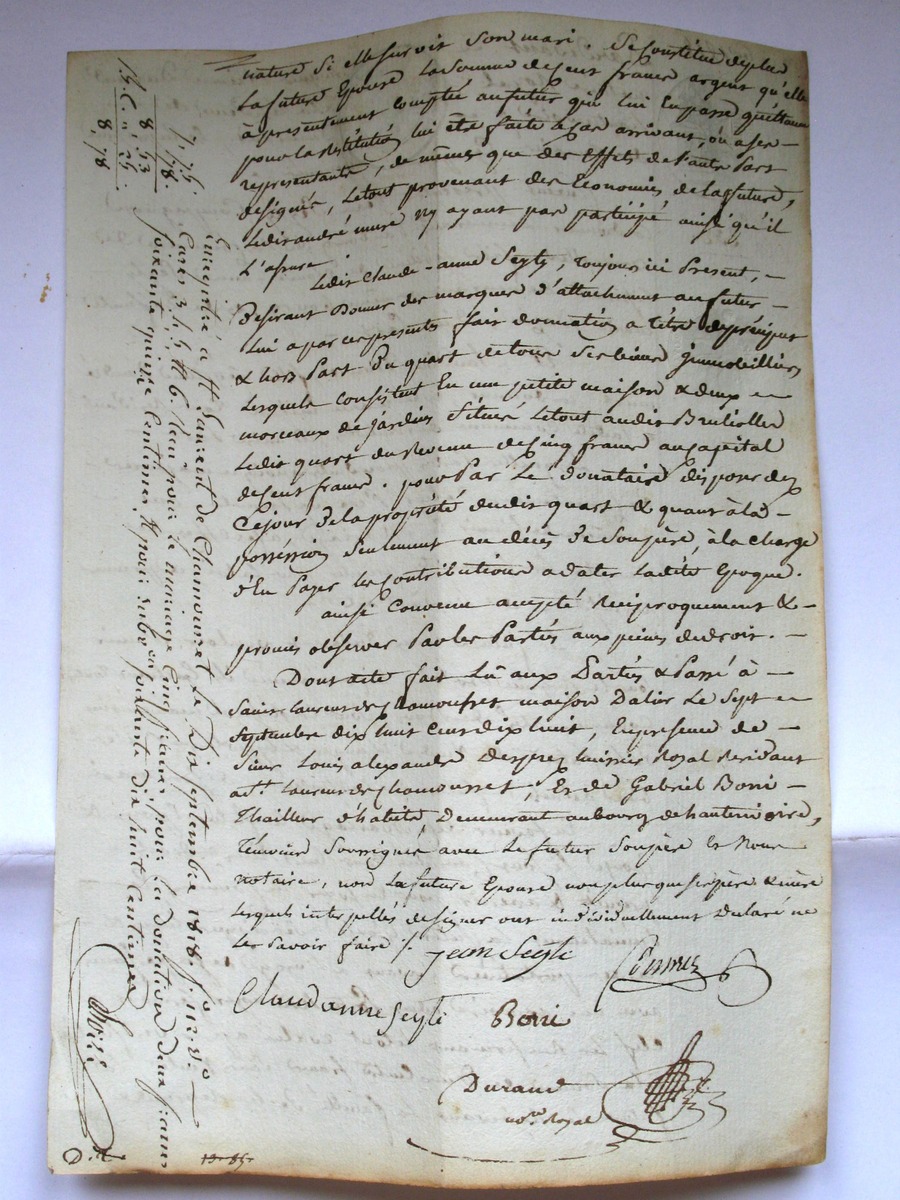 nature si elle survit son mari. Se constitue deplus
La future Epouse La somme de Cent francs argent qu'elle
à présentement comptée au futur qui lui En passe quittance
pour la Restitution lui être faite à cas arrivant, ou a ses
représentants, de même que des Effets de l'autre Part
designés, Letout provenant des Economies de la future,
Ledit andré mure n'y ayant pas participé ainsi qu'il
L'assure
Ledit Claude-anne Seyty, toujours ici Present,
Desirant Donner des marques d'attachement au futur
Lui a par ces presentes fait donnation a titre de préciput
& hors Part Du quart de tous ses biens Immobilliers
Lesquels Consistent En une petite maison & deux
morceaux de jardins situés Letout audit Brullioles
Ledit quart du Revenu de Cinq francs au capital
de Cent francs. pour Par Le donataire disposer dez
Cejour de la propriété dudit quart & quant à la
possession seulement au décès de son père, à la charge
d'En Payer les Contributions a dater Ladite Epoque.
ainsi Convenu accepté Réciproquement &
promis observer Par les Parties aux peines de droit.
Dont acte fait Lû aux Parties & Passé à
Saint Laurent de Chamousset maison Dalin Le Sept
Septembre dix huit cent dix huit, En présence de
Sieur Louis alexandre Desprez huissier Royal Residant
a St. Laurent de Chamousset, Et de Gabriel Boni
Thailleur d'habits Demeurant au bourg de hauterivoire,
Témoins Soussignés avec Le futur Son père Et Nous
notaire, non La future Epouse non plus que ses père & mère
Lesquels interpellés de signer ont individuellement Déclaré ne
Les savoir faire /.
Jean Seyti
Claud anne Seyti
Boni
Durand
no.re Royal
Enregistré a St Laurent de Chamousset le Dix septembre 1818. fo. 112. Vo.
Cases 3. 4. 5. & 6. Reçu pour le mariage Cinq francs, pour la donation deux francs
soixante quinze Centimes, & pour subv.on soixante dix huit Centimes
7,75.
78.
8,53
8,78
13-85